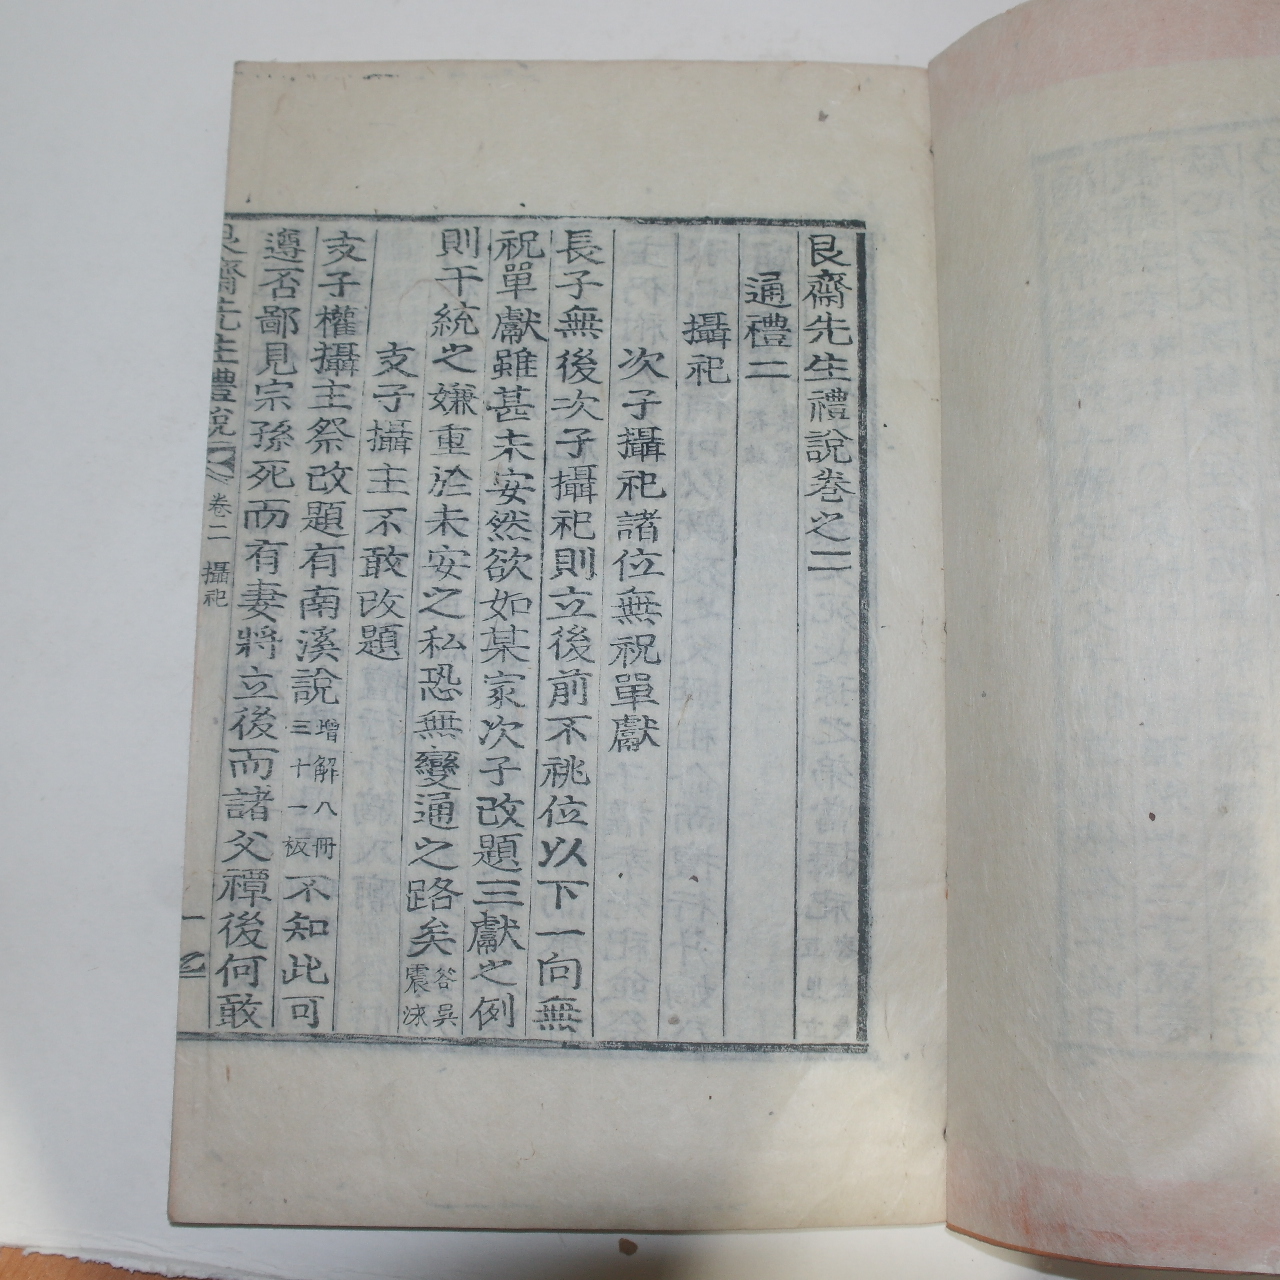 艮齋先生禮說卷之二
通禮二
攝祀
次子攝祀諸位無祝單獻
長子無後次子攝祀則立後前不祧位以下一向無
祝單獻雖甚未安然欲如某家次子改題三獻之例
則干統之嫌重於未安之私恐無變通之路矣答吳震泳
支子攝主不敢改題
支子權攝主祭改題有南溪說增解八冊三十一板不知此可
遵否鄙見宗孫死而有妻將立後而諸父禫後何敢
艮齋先生禮說 卷二 攝祀 一